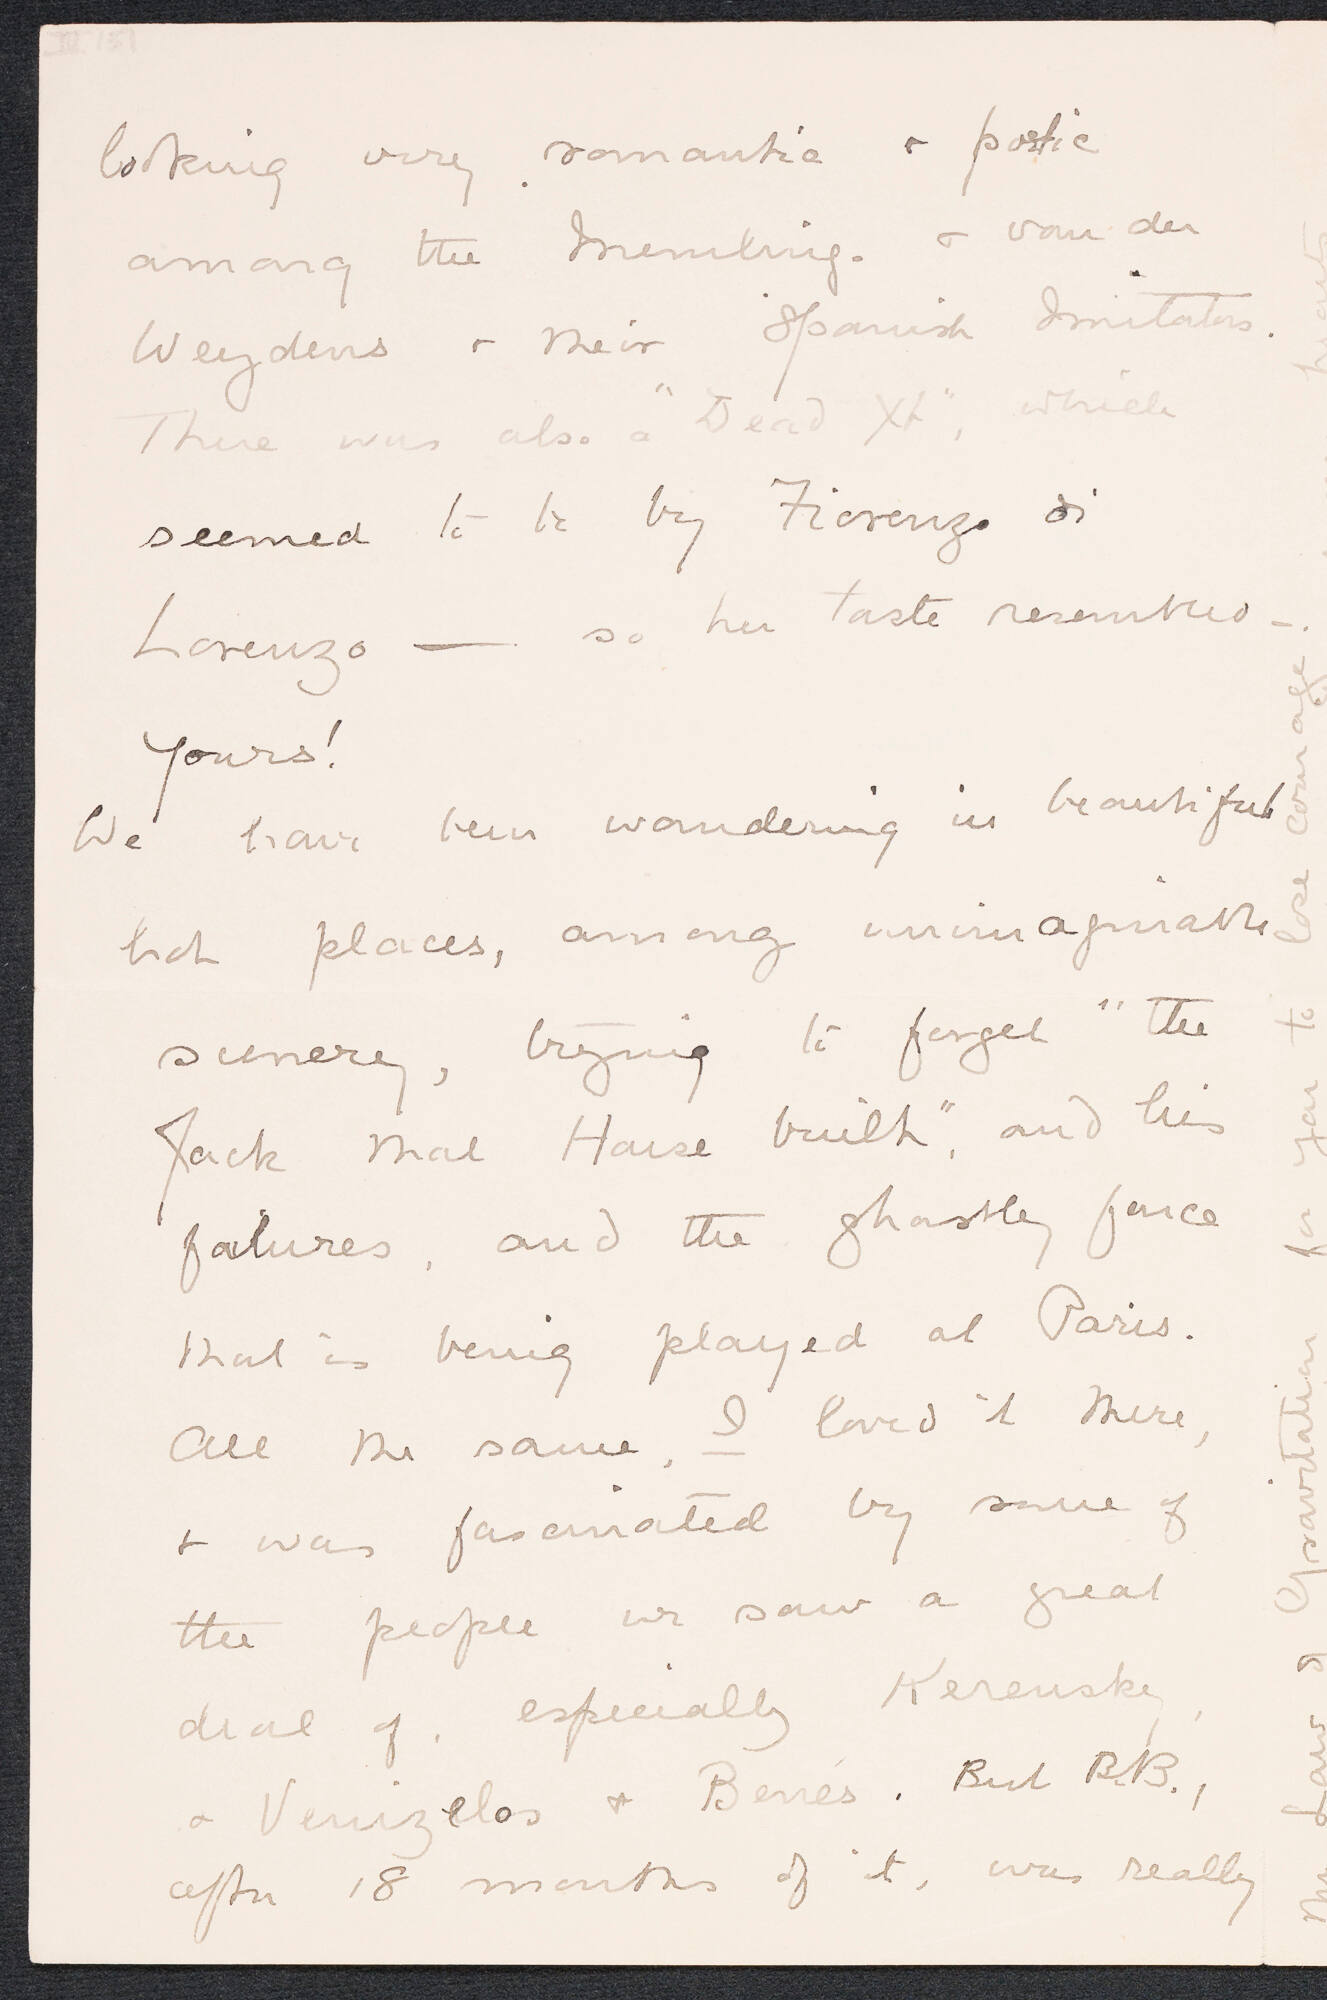 looking very romantic & poetic
among the Memling. & van der
Weydens & their Spanish Imitators.
There was also a "Dead Xt", which
seemed to be by Fiorenzo di
Lorenzo — so her taste resembled
yours!
We have been wandering in beautiful
hot places, among unimaginable
scenery, trying to forget "the
Jack that House built", and his
failures, and the ghastly farce
that is being played at Paris.
All the same, I loved it there,
& was fascinated by some of
the people we saw a great
deal of, especially Kerensky,
& Venizelos & Benés. But B.B.,
after 18 months of it, was really
The Law of Gravitation for you to lose courage